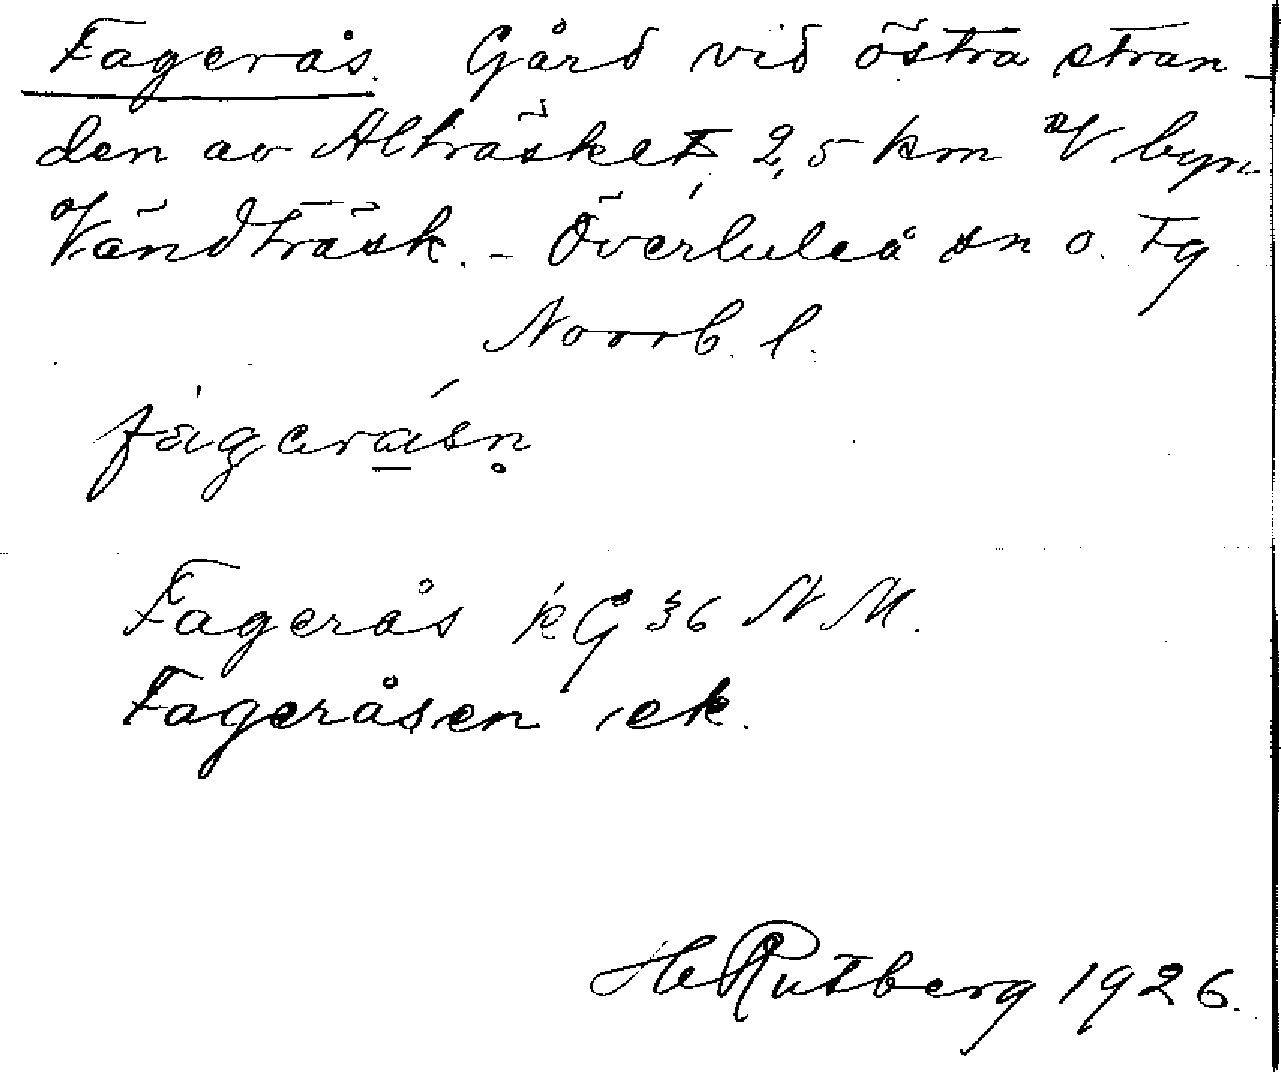 Fagerås. Gård vid östra stran-
den av Alträsket, 2,5 km V byn
Vändträsk. - Överluleå sn o. tg
Norrb. l.
Fagerås NM.
Fageråsen ek.
H Rutberg 1926.